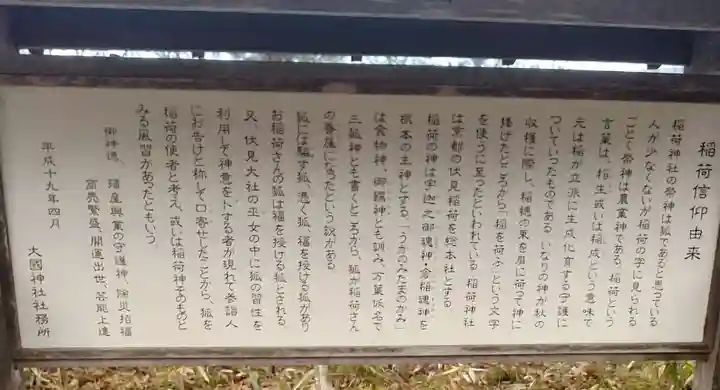 稲荷信仰由来
稲荷神社の祭神は狐であると思っている
人が少なくないが稲荷の字に見られる
ごとく祭神は農業神である。稲荷という
言葉は、稲生或いは稲成という意味で
元は稲が立派に生成化育する守護に
ついていったものである いなりの神が秋の
収穫に際し、稲穂の束を肩に荷って神に
捧げたところから「稲を荷ふ」という文字
を使うに至ったといわれている 稲荷神社
は京都の伏見稲荷を総本社とする
稲荷の神は宇迦之御魂神・倉稲魂神を
根本の主神とする。「うかのみたまのかみ」
は食物神、御饌神とも訓み、万葉仮名で
三狐神とも書くところから、狐が稲荷さん
の眷属に当たったという説がある
狐には騙す狐、憑く狐、福を授ける狐があり
お稲荷さんの狐は福を授ける狐とされる
又、伏見大社の巫女の中に狐の習性を
利用して神意を卜する者が現れて参詣人
にお告げと称して口寄せしたことから、狐を
稲荷の使者と考え、或いは稲荷神そのものと
みる風習があったともいう。
御神徳、殖産興業の守護神、除災招福
商売繁盛、開運出世、芸能上達
平成十九年四月
大國神社社務所